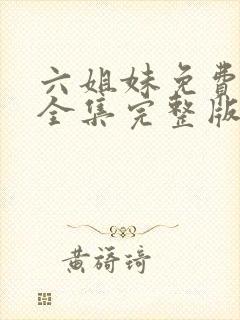 六姐妹免费
全集完整版
黄蒟琦